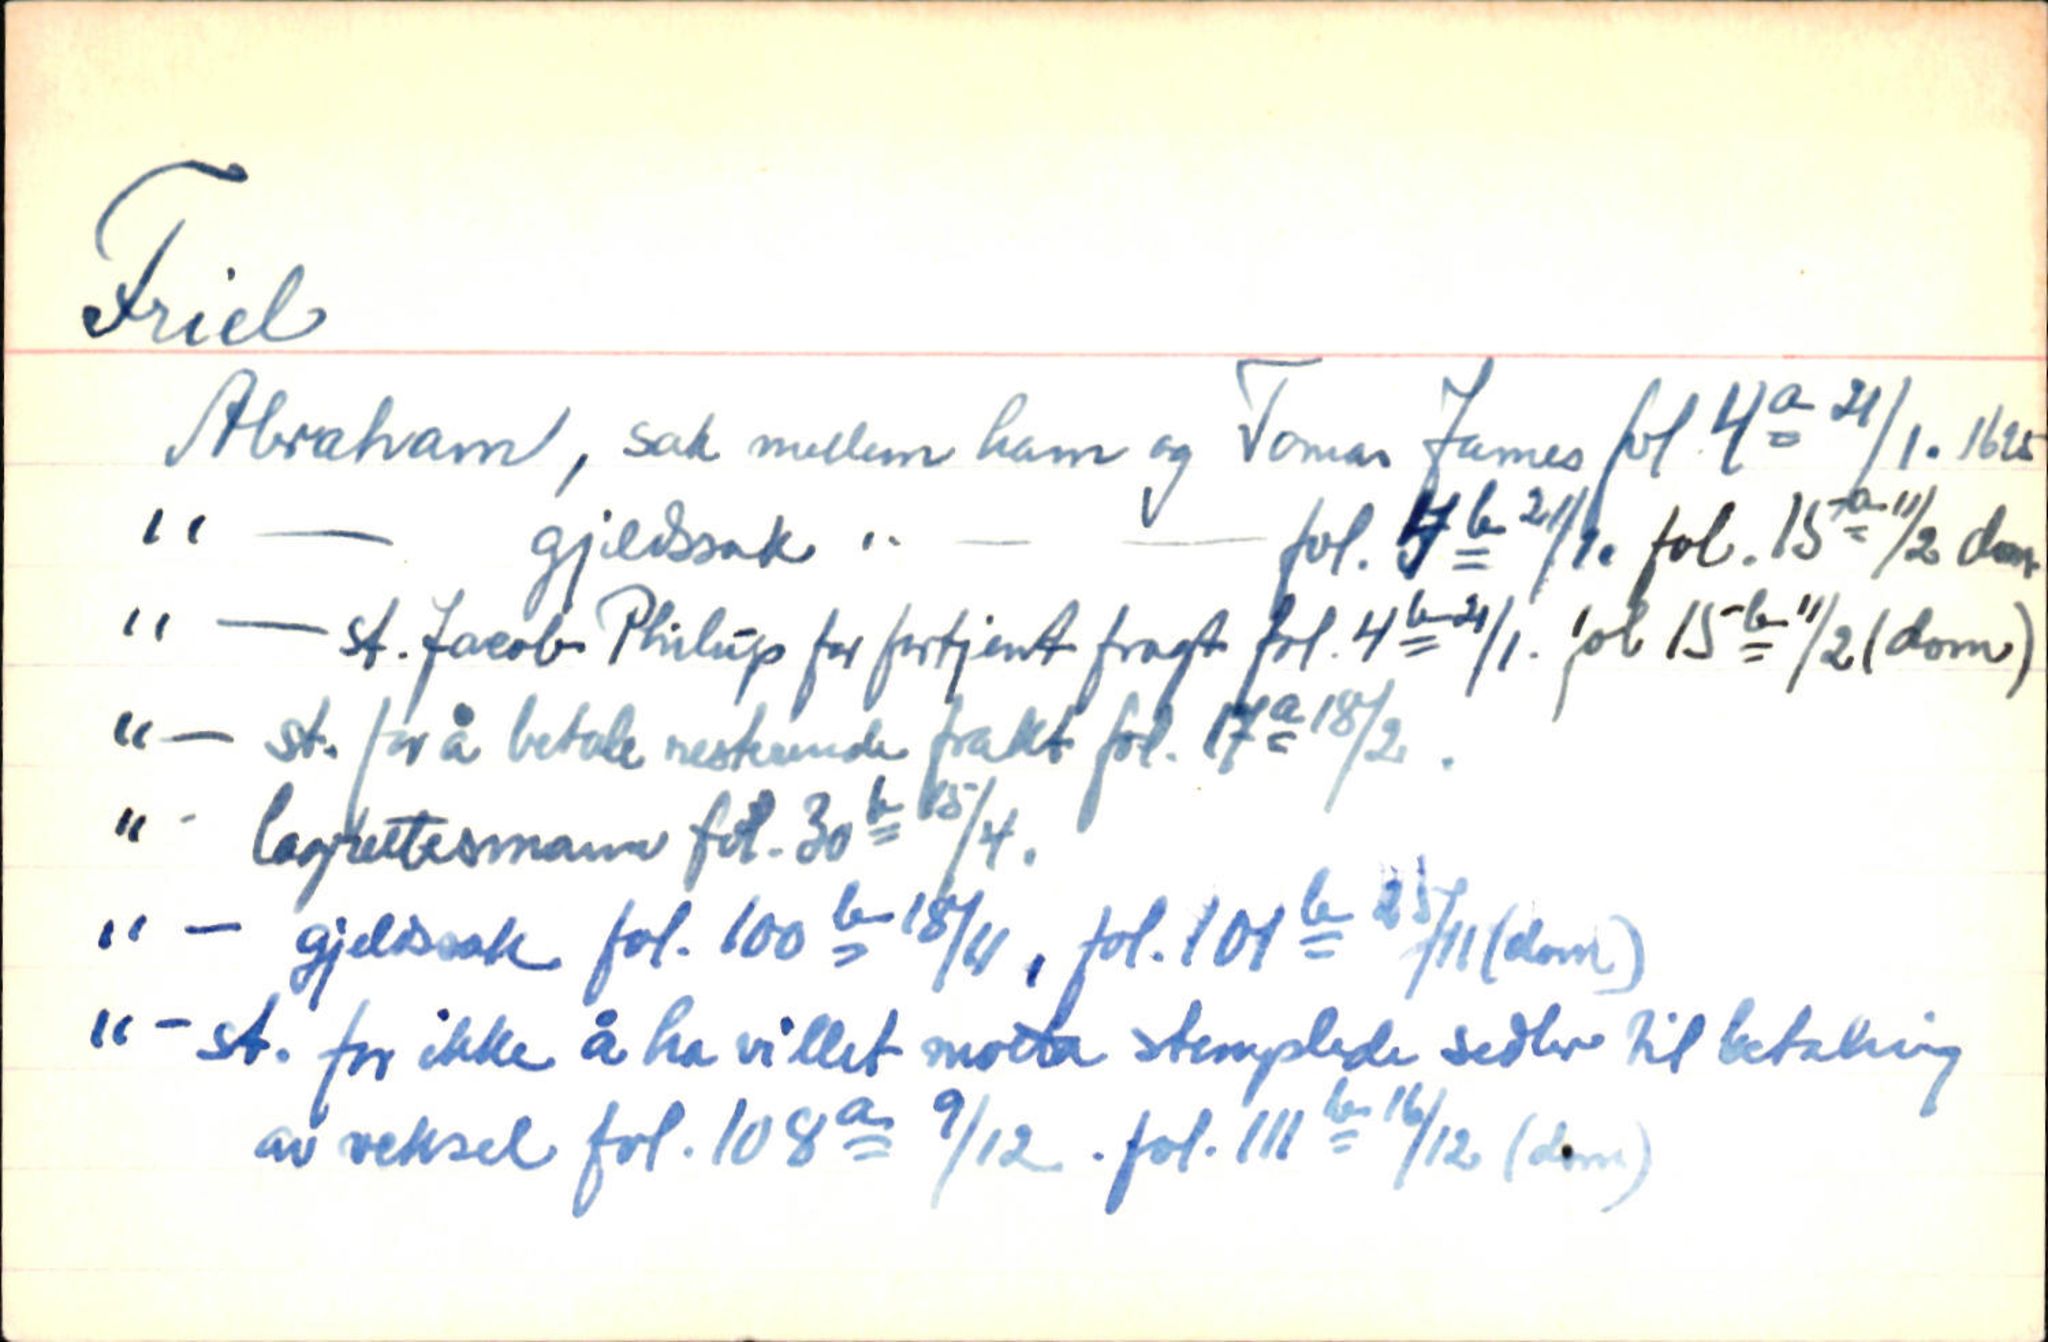 Friel
Abraham, sak mellem ham og Tomas James fol. 4a 21/1. 1695
" — gjeldssak " — — fol. 4b 21/1. fol. 15a 11/2 dom
" — st. Jacob Philúps for fortjent fragt fol. 4b 21/1. fol 15b 11/2 (dom)
" — st. for å betale resterende frakt fol. 17a 18/2.
" - lagrettesmann fol. 30b 15/4.
" — gjeldssak fol. 100b 18/11, fol. 101b 25/11 (dom)
" - st. for ikke å ha villet motta stemplede sedler til betaling
av veksel fol. 108a 9/12. fol. 111b 16/12 (dom)